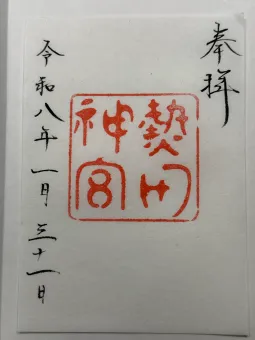 奉拝
熱田
神宮
令和八年一月三十一日